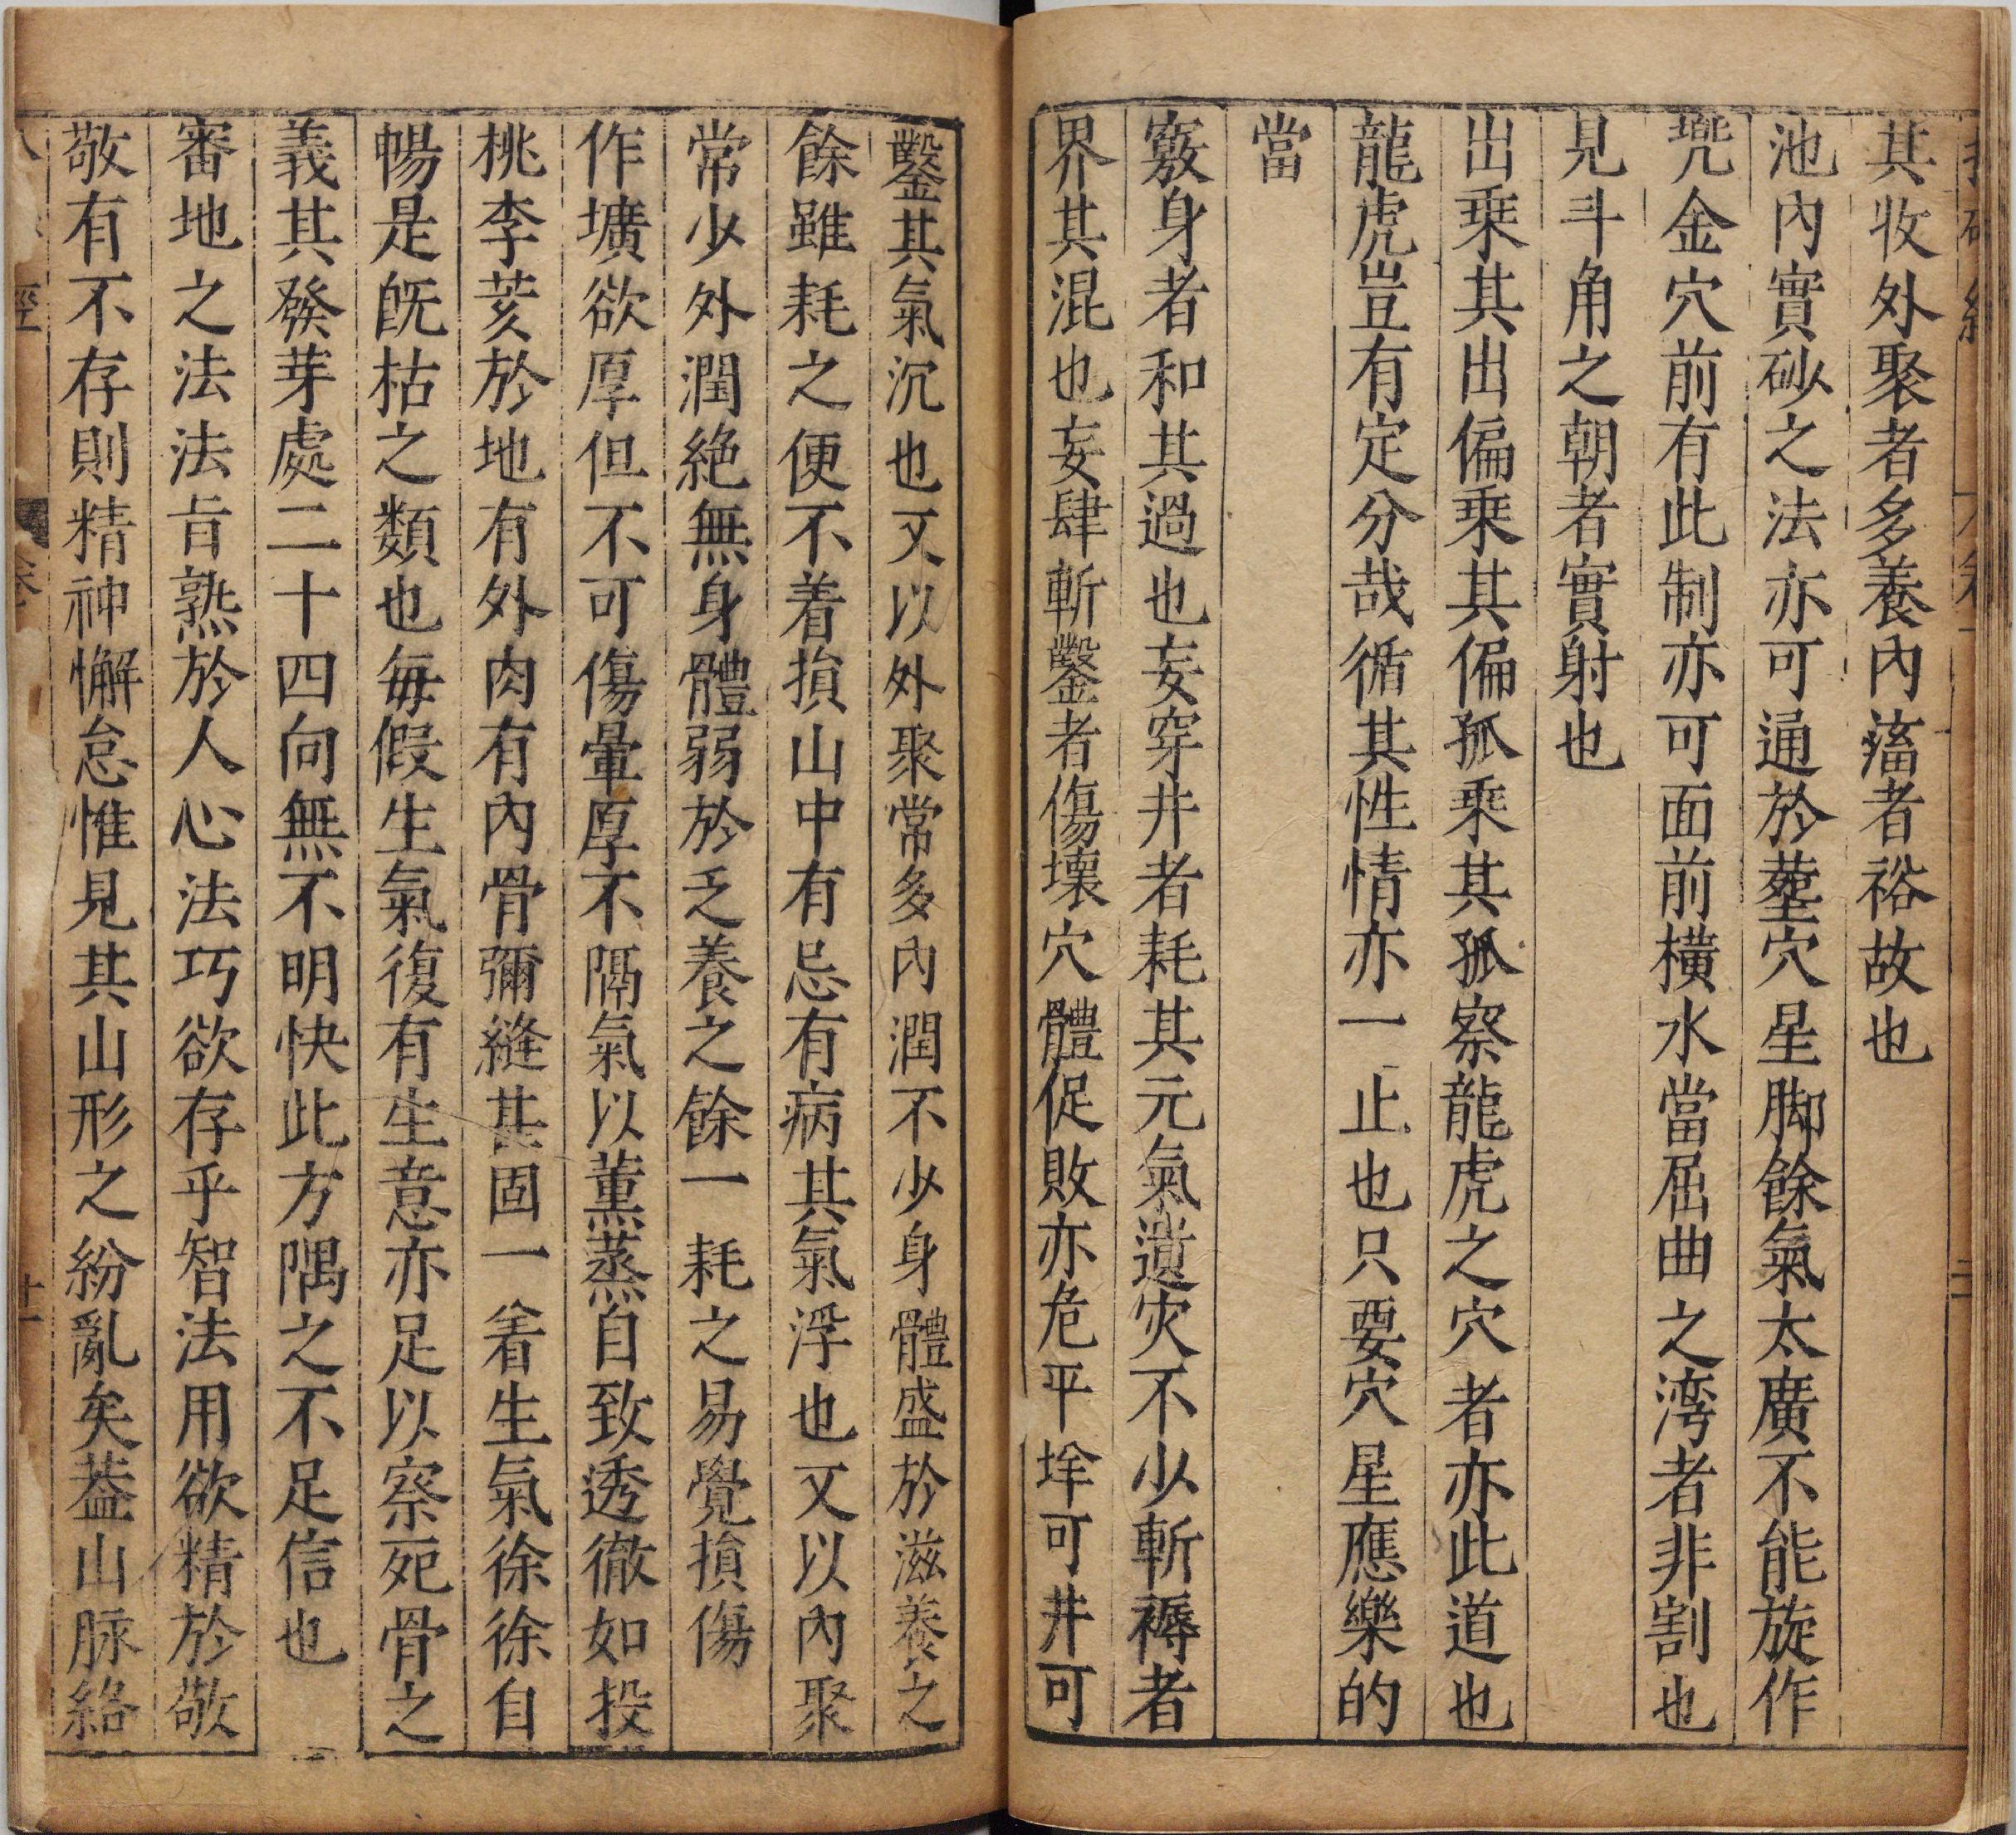 其收外聚者多養內瀦者裕故也
池內實砂之法亦可通於塟穴星脚餘氣太廣不能旋作
兠金穴前有此制亦可面前橫水當屈曲之湾者非割也
見斗角之朝者實射也
出乘其出偏乘其偏孤乘其孤察龍虎之穴者亦此道也
龍虎豈有定分哉循其性情亦一止也只要穴星應樂的
當
竅身者和其過也妄穿井者耗其元氣遺灾不少斬褥者
界其混也妄肆斬鑿者傷壞穴體促敗亦危平垟可井可
鑿其氣沉也又以外聚常多內潤不少身體盛於滋養之
餘雖耗之便不着損山中有忌有病其氣浮也又以內聚
常少外潤絶無身體弱於乏養之餘一耗之易覺損傷
作壙欲厚但不可傷暈厚不隔氣以薰蒸自致透徹如投
桃李荄於地有外肉有內骨彌縫甚固一着生氣徐徐自
暢是旣枯之類也每假生氣復有生意亦足以察死骨之
義其發芽處二十四向無不明快此方隅之不足信也
審地之法法旨熟於人心法巧欲存乎智法用欲精於敬
敬有不存則精神懈怠惟見其山形之紛亂矣葢山脉絡